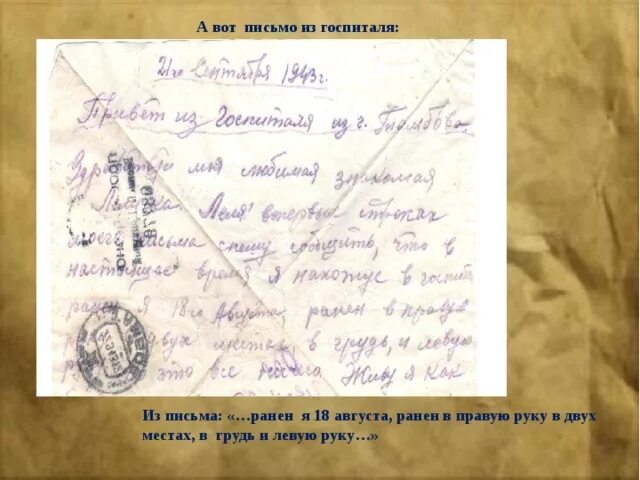 А вот письмо из госпиталя:
21го Сентября 1943г.
Привет из Госпиталя из г. Тамбова
Здравствуй моя любимая знакомая
Леля! впервых строках
моего письма спешу сообщить, что в
настоящее время я нахожус в госпит
ранен я 18го Августа ранен в правую
двух местах, в грудь, и левую
это все Живу я как
Из письма: «…ранен я 18 августа, ранен в правую руку в двух
местах, в грудь и левую руку…»